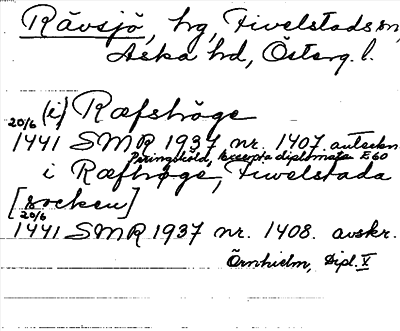 Rävsjö, hg, Fivelstads sn,
Aska hd, Österg. l.
(i) Ræfshöge
20/6
1441 SMR 1937 nr. 1407. anteckn.
Peringskiöld, Excerpta diplomata E 60
i Ræfhøge, Fiwelstada
[socken]
20/6
1441 SMR 1937 nr. 1408. avskr.
Örnhielm, Dipl. V